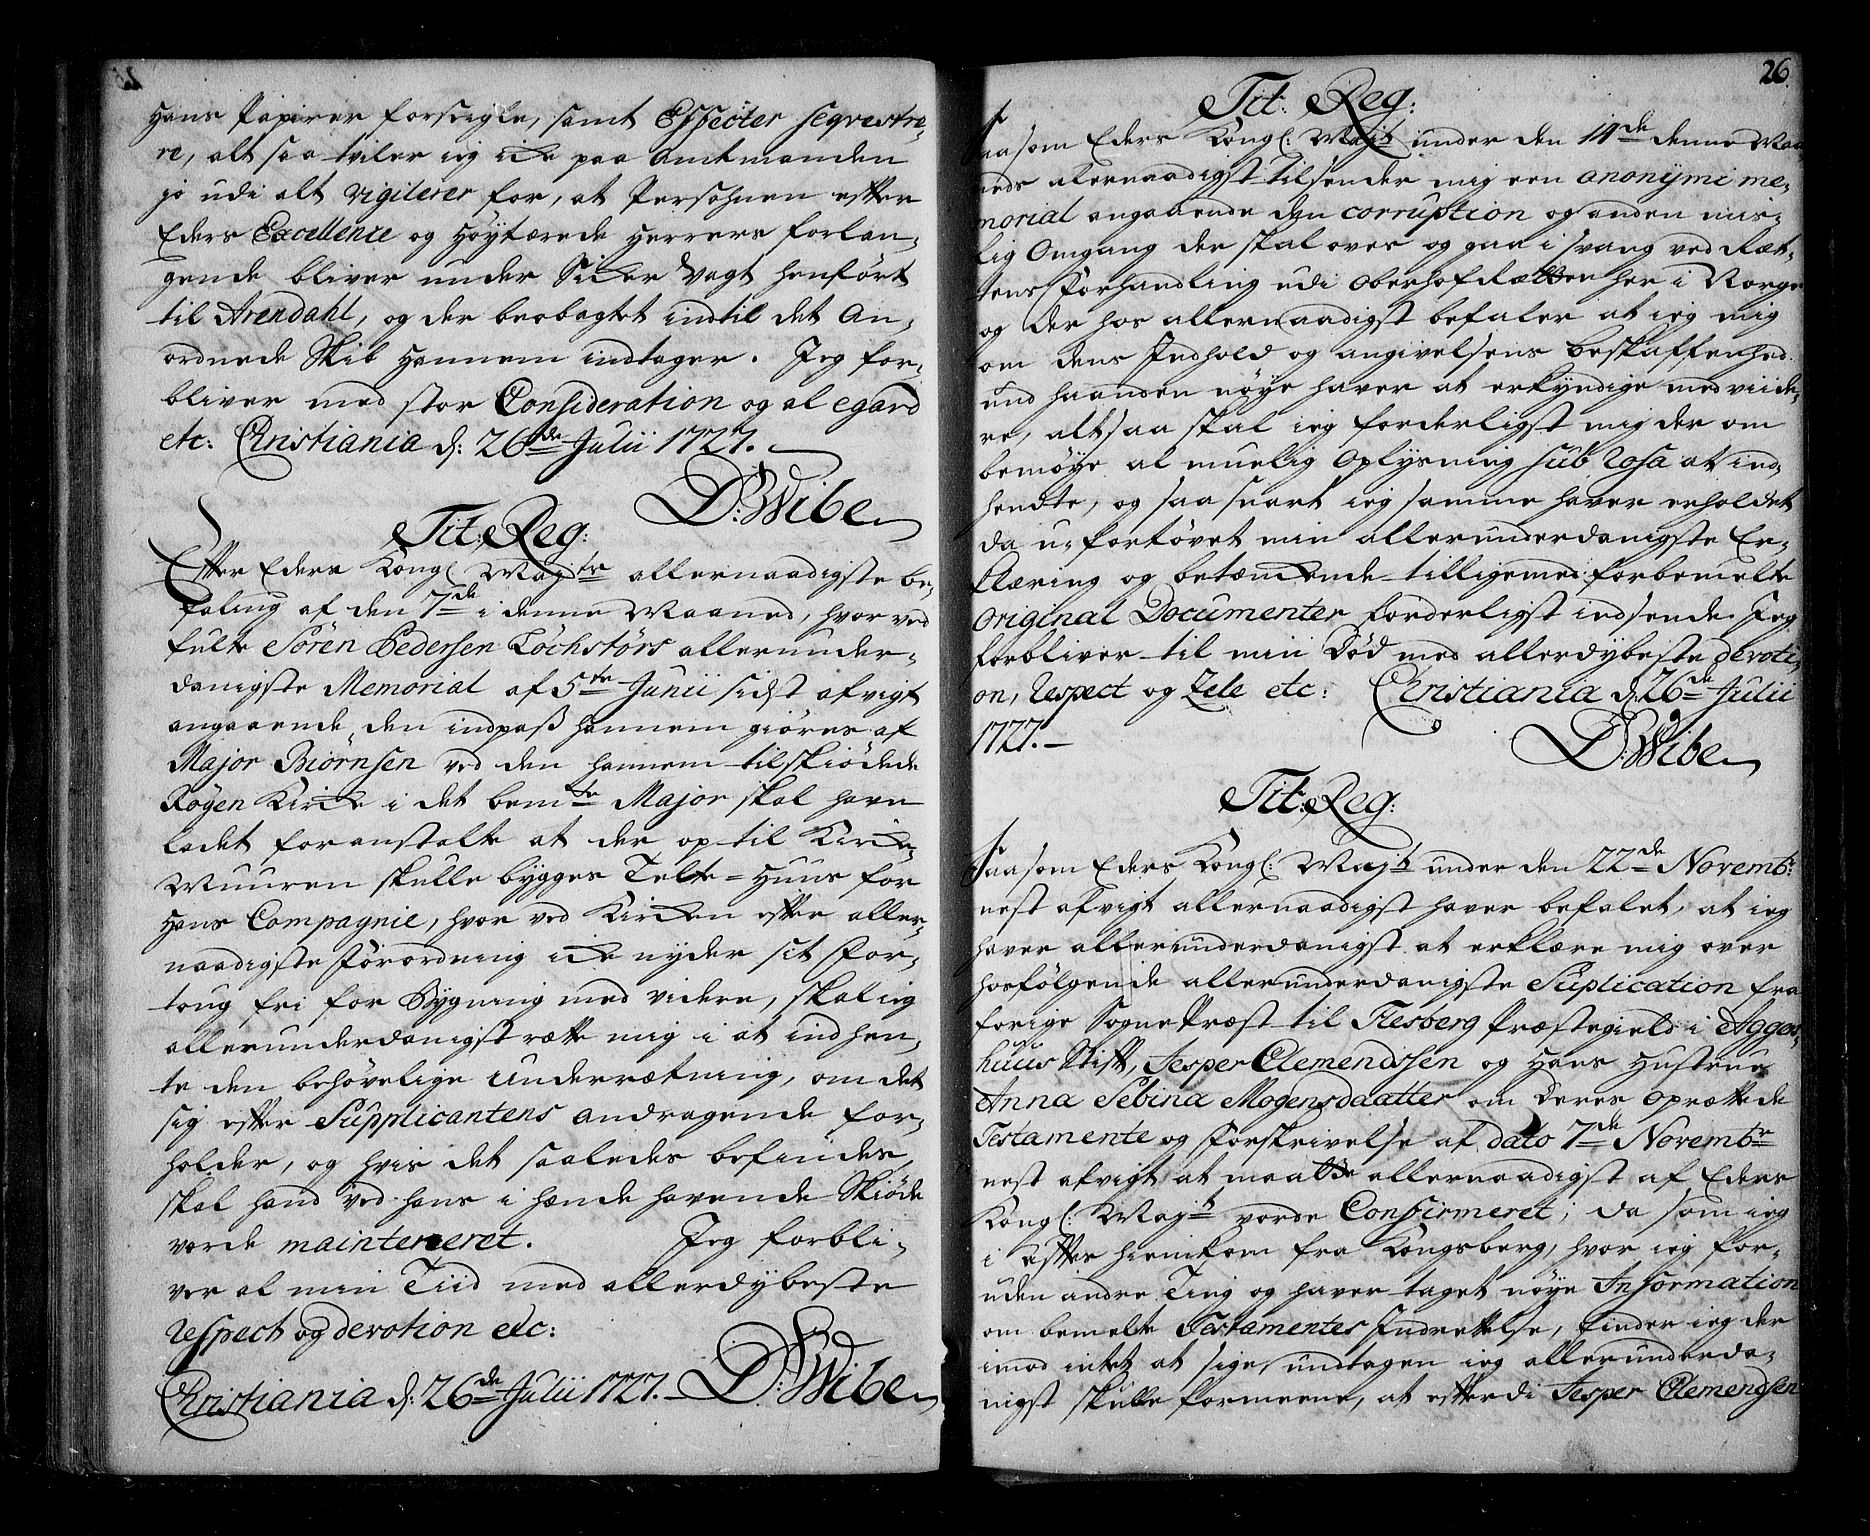 Hans Papirer forseigle, samt Effecter seqvestre-
re, alt saa tviler ieg icke paa Amtmanden
jo udi alt vigilerer for, at Persohnen efter
Eders Excellence og Höytærede Herrers forlan-
gende bliver under Sicker Vagt henfört
til Arendahl, og der beobagtet indtil det An-
ordnede Skib hannem indtager. Jeg for-
bliver med stor Consideration og al egard
etc: Christiania d: 26de Julii 1727.
D: Wibe
Tit: Reg:
Efter Eders Kongl Maytts allernaadigste be-
faling af den 7de i denne Maaned, hvor ved
fulte Sören Pedersen Löchstörs allerunder-
danigste Memorial af 5te Junii sidst afvigt
angaaende den indpaß hannem giöres af
Major Biörnsen ved den hannem tilskiödede
Röyen Kircke i det bemte Major skal have
ladet foranstalte at der op til Kircke-
Muuren skulle bygges Telte-Huus for
Hans Compagnie, hvor ved Kircken efter aller-
naadigste Forordning icke nyder sit For-
toug fri for Bygning med videre, skal ieg
allerunderdanigst rætte mig i at indhen-
te den behövelige Underrætning, om det
sig efter Supplicantens andragende for-
holder, og hvis det saaledes befindes,
skal hand ved hans i hænde havende Skiöde
vorde mainteneret. Jeg forbli-
ver al min Tiid med allerdybeste
respect og devotion etc:
Christiania d: 26de Julii 1727. D: Wibe
26.
Tit: Reg:
Saasom Eders Kongl: Majt under den 14de denne Maa-
neds allernaadigst tilsender mig een anonymi me-
morial angaaende den corruption og anden mis-
lig Omgang der skal over og gaa i svang ved Ræt-
tens Forhandling udi OberhofRætten her i Norge
og der hos allernaadigst befaler at ieg mig
om dens Indhold og angivelsens beskaffenhed
und haanden nöye haver at erkyndige med viide-
re, altsaa skal ieg forderligst mig der om
bemöye al muelig Oplysning sub rosa at ind-
hendte, og saa snart ieg samme haver erholdet
da u-fortövet min allerunderdanigste Er-
klæring og betænckende tilligemed forbemelte
Original Documenter forderligst indsende. Jeg
forbliver til min Död med allerdybeste devoti-
on, respect og Zele etc: Christiania d: 26de Julii
1727.
D: Wibe
Tit: Reg:
Saasom Eders Kongl: Majt under den 22de Novembr:
nest afvigt allernaadigst haver befalet, at ieg
haver allerunderdanigst at erklære mig over
hosfölgende allerunderdanigste Suplication fra
forige SognePræst til Flesberg Præstegield i Agger-
huus Stift, Jesper Clemendssen og Hans Hustrue
Anna Sebina Mogensdaatter om Deres Oprettede
Testamente og Forskrivelse af dato 7de Novembr
nest afvigt at maatte allernaadigst af Eders
Kongl: Majt vorde Confirmeret; Da som ieg
i efter hiemkom fra Kongsberg, hvor ieg for-
uden andre Ting og haver taget nöye Information
om bemelte Testamentes Indrettelse, finder ieg der
imod intet at sige, undtagen ieg allerunderda-
nigst skulle formeene, at efterdi Jesper Clemendsen